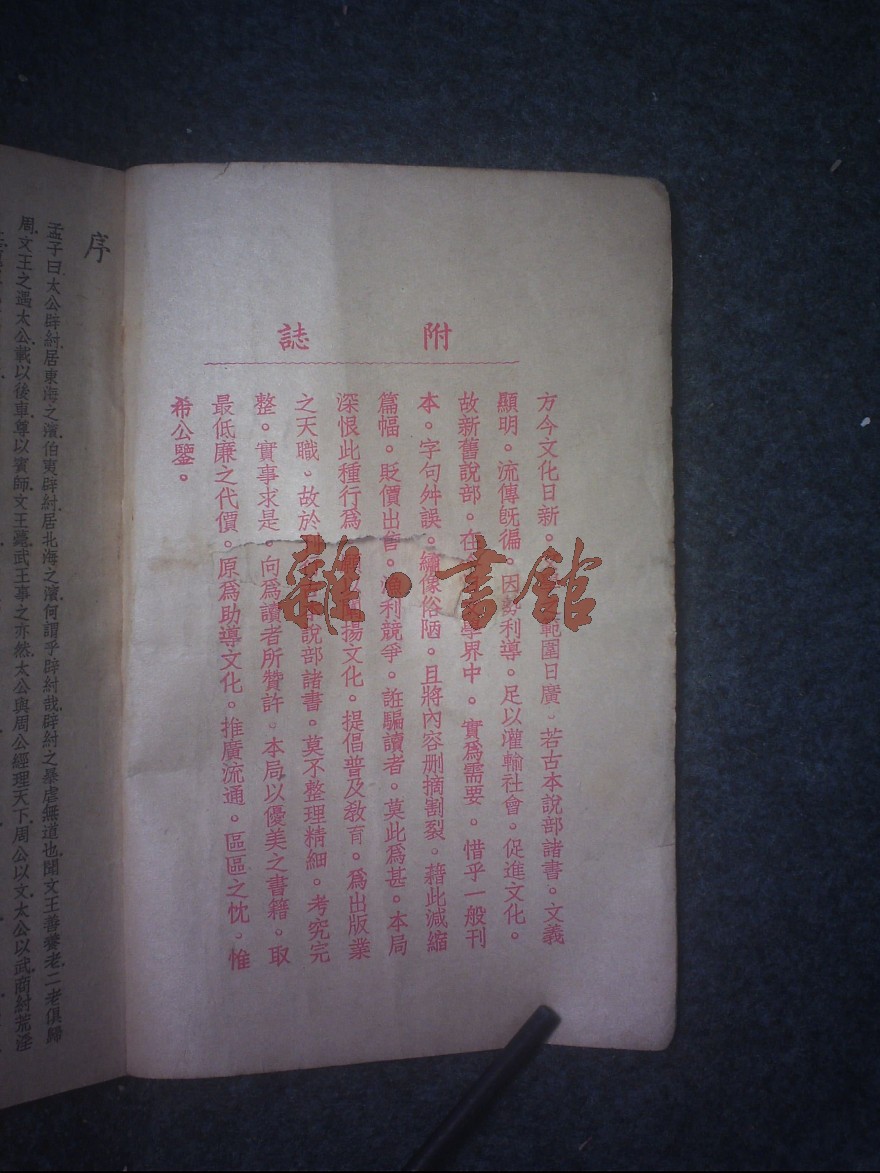 附誌
方今文化日新。範圍日廣。若古本說部諸書。文義
顯明。流傳旣徧。因勢利導。足以灌輸社會。促進文化。
故新舊說部。在學界中。實爲需要。惜乎一般刊
本。字句舛誤。繡像俗陋。且將內容删摘割裂。藉此減縮
篇幅。貶價出售。漁利競爭。誑騙讀者。莫此爲甚。本局
深恨此種行爲揚文化。提倡普及敎育。爲出版業
之天職。故於說部諸書。莫不整理精細。考究完
整。實事求是。向爲讀者所贊許。本局以優美之書籍。取
最低廉之代價。原爲助導文化。推廣流通。區區之忱。惟
希公鑒。
雜·書館
序
孟子曰太公辟紂居東海之濱伯夷辟紂居北海之濱何謂乎辟紂哉辟紂之暴虐無道也聞文王善養老二老俱歸
周文王之遇太公載以後車尊以賓師文王薨武王事之亦然太公與周公經理天下周公以文太公以武商紂荒淫